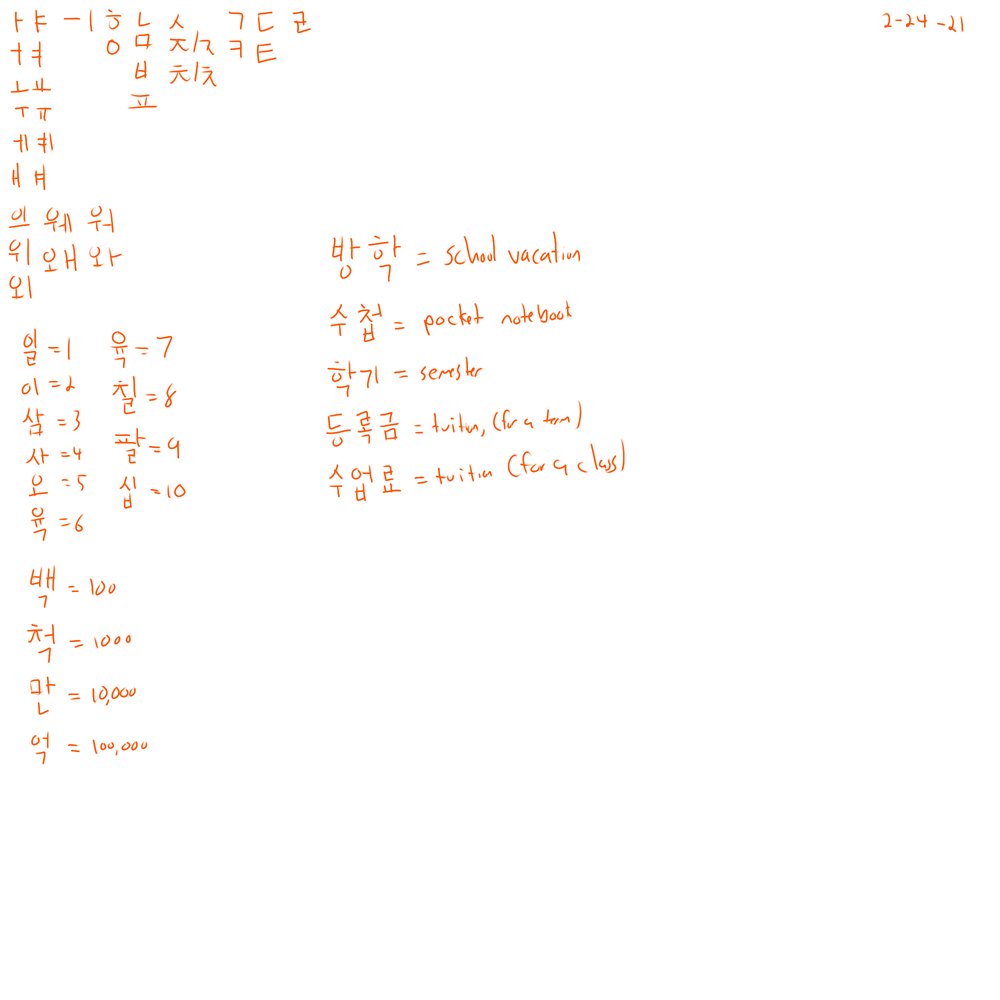 ㅏ ㅑ ㅡ ㅣ ㅎ 남 ㅅ ㄱ ㄷ ㄹ
ㅓ ㅕ ㅇ ㅁ ㅈ/ㅈ ㅋ ㅌ
ㅗ ㅛ ㅂ ㅊ/ㅊ
ㅜ ㅠ ㅍ
ㅔ ㅖ
ㅐ ㅒ
의 웨 워
위 왜 와
외
2-24-21
일 = 1
이 = 2
삼 = 3
사 = 4
오 = 5
육 = 6
육 = 7
칠 = 8
팔 = 9
십 = 10
백 = 100
척 = 1000
만 = 10,000
억 = 100,000
방학 = school vacation
수첩 = pocket notebook
학기 = semester
등록금 = tuition, (for a term)
수업료 = tuition (for a class)